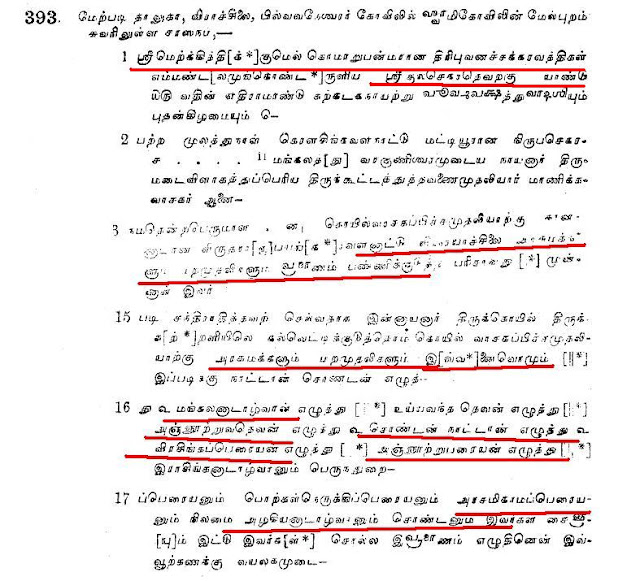 393. மேற்படி தாலுகா, விராச்சிலை, பில்வவனேஸ்வரர் கோவிலில் ஸ்வாமிகோவிலின் மேல்புறம்
சுவரிலுள்ள சாஸநம்,—
1 ஸ்ரீமெற்க்கித்தி[க் *]குமெல் கொமாறுபன்மரான திரிபுவனச்சக்கரவத்திகள்
எம்மண்ட[லமுங்கொண்ட *]ருளிய ஸ்ரீ குலசெகரதெவற்கு யாண்டு
வதின் எதிராமாண்டு கற்கடகநாயற்று
புதன்கிழமையும் பெ—
2 பற்ற மூலத்துநாள் கெரளசிங்கவளநாட்டு மட்டியூரான நிருபசெகர
ச . . . . 11 மங்கலத[து] வரகுணிஸ்வரமுடைய நாயனார் திரு
மடைவிளாகத்துப்பெரிய திருக்கூட்டத்துத்தவணைமுதலியார் மாணிக்க
வாசகர் ஆணை—
3 கொயில்வாசகப்பிச்சமுதலியாற்கு
பண்ணிக்குடுத்த பரிசாவது [ *] முன்
னாள் இவர்
15 படி சந்திராதித்தவற் செல்வதாக இன்னாயனார் திருக்கொயில் திருக்
க[ற் *]றளியிலெ கல்வெட்டிக்குடுத்தொம் கொயில் வாசகப்பிச்சமுதலி
யாற்கு அரசமக்களும் படைமுதலிகளும் இ[வ்வ *]னைவொமும் [॥ *]
இப்படிக்கு நாட்டான் சொணடன் எழுத்—
16 து உ மங்கலனாடாழ்வான் எழுத்து [ *] உய்யவந்த தெவன் எழுத்து [ *]
அஞ்ஞூற்றுவதெவன் எழுத்து உ சொண்டன் நாட்டான் எழுத்து உ
விரசிங்கப்பெரையன் எழுத்து [ *] அஞ்ஞூற்றுபரையன் எழுத்து [ *]
இராசிங்கனாடாழ்வானும் பெருந்துறை—
17 ப்பெரையனும் பொற்கள்நெருக்கிப்பெரையனும் அரசமிகாமப்பெரைய
னும் நிலமை அழகியனாடாழ்வானும் சொண்டனும் இவர்கள் சை[ஞ்
[யும்] இட்டு இவர்க[ள் *] சொல்ல இப்ரமாணம் எழுதினென் இவ்
வூற்கணக்கு வயலகமுடை—